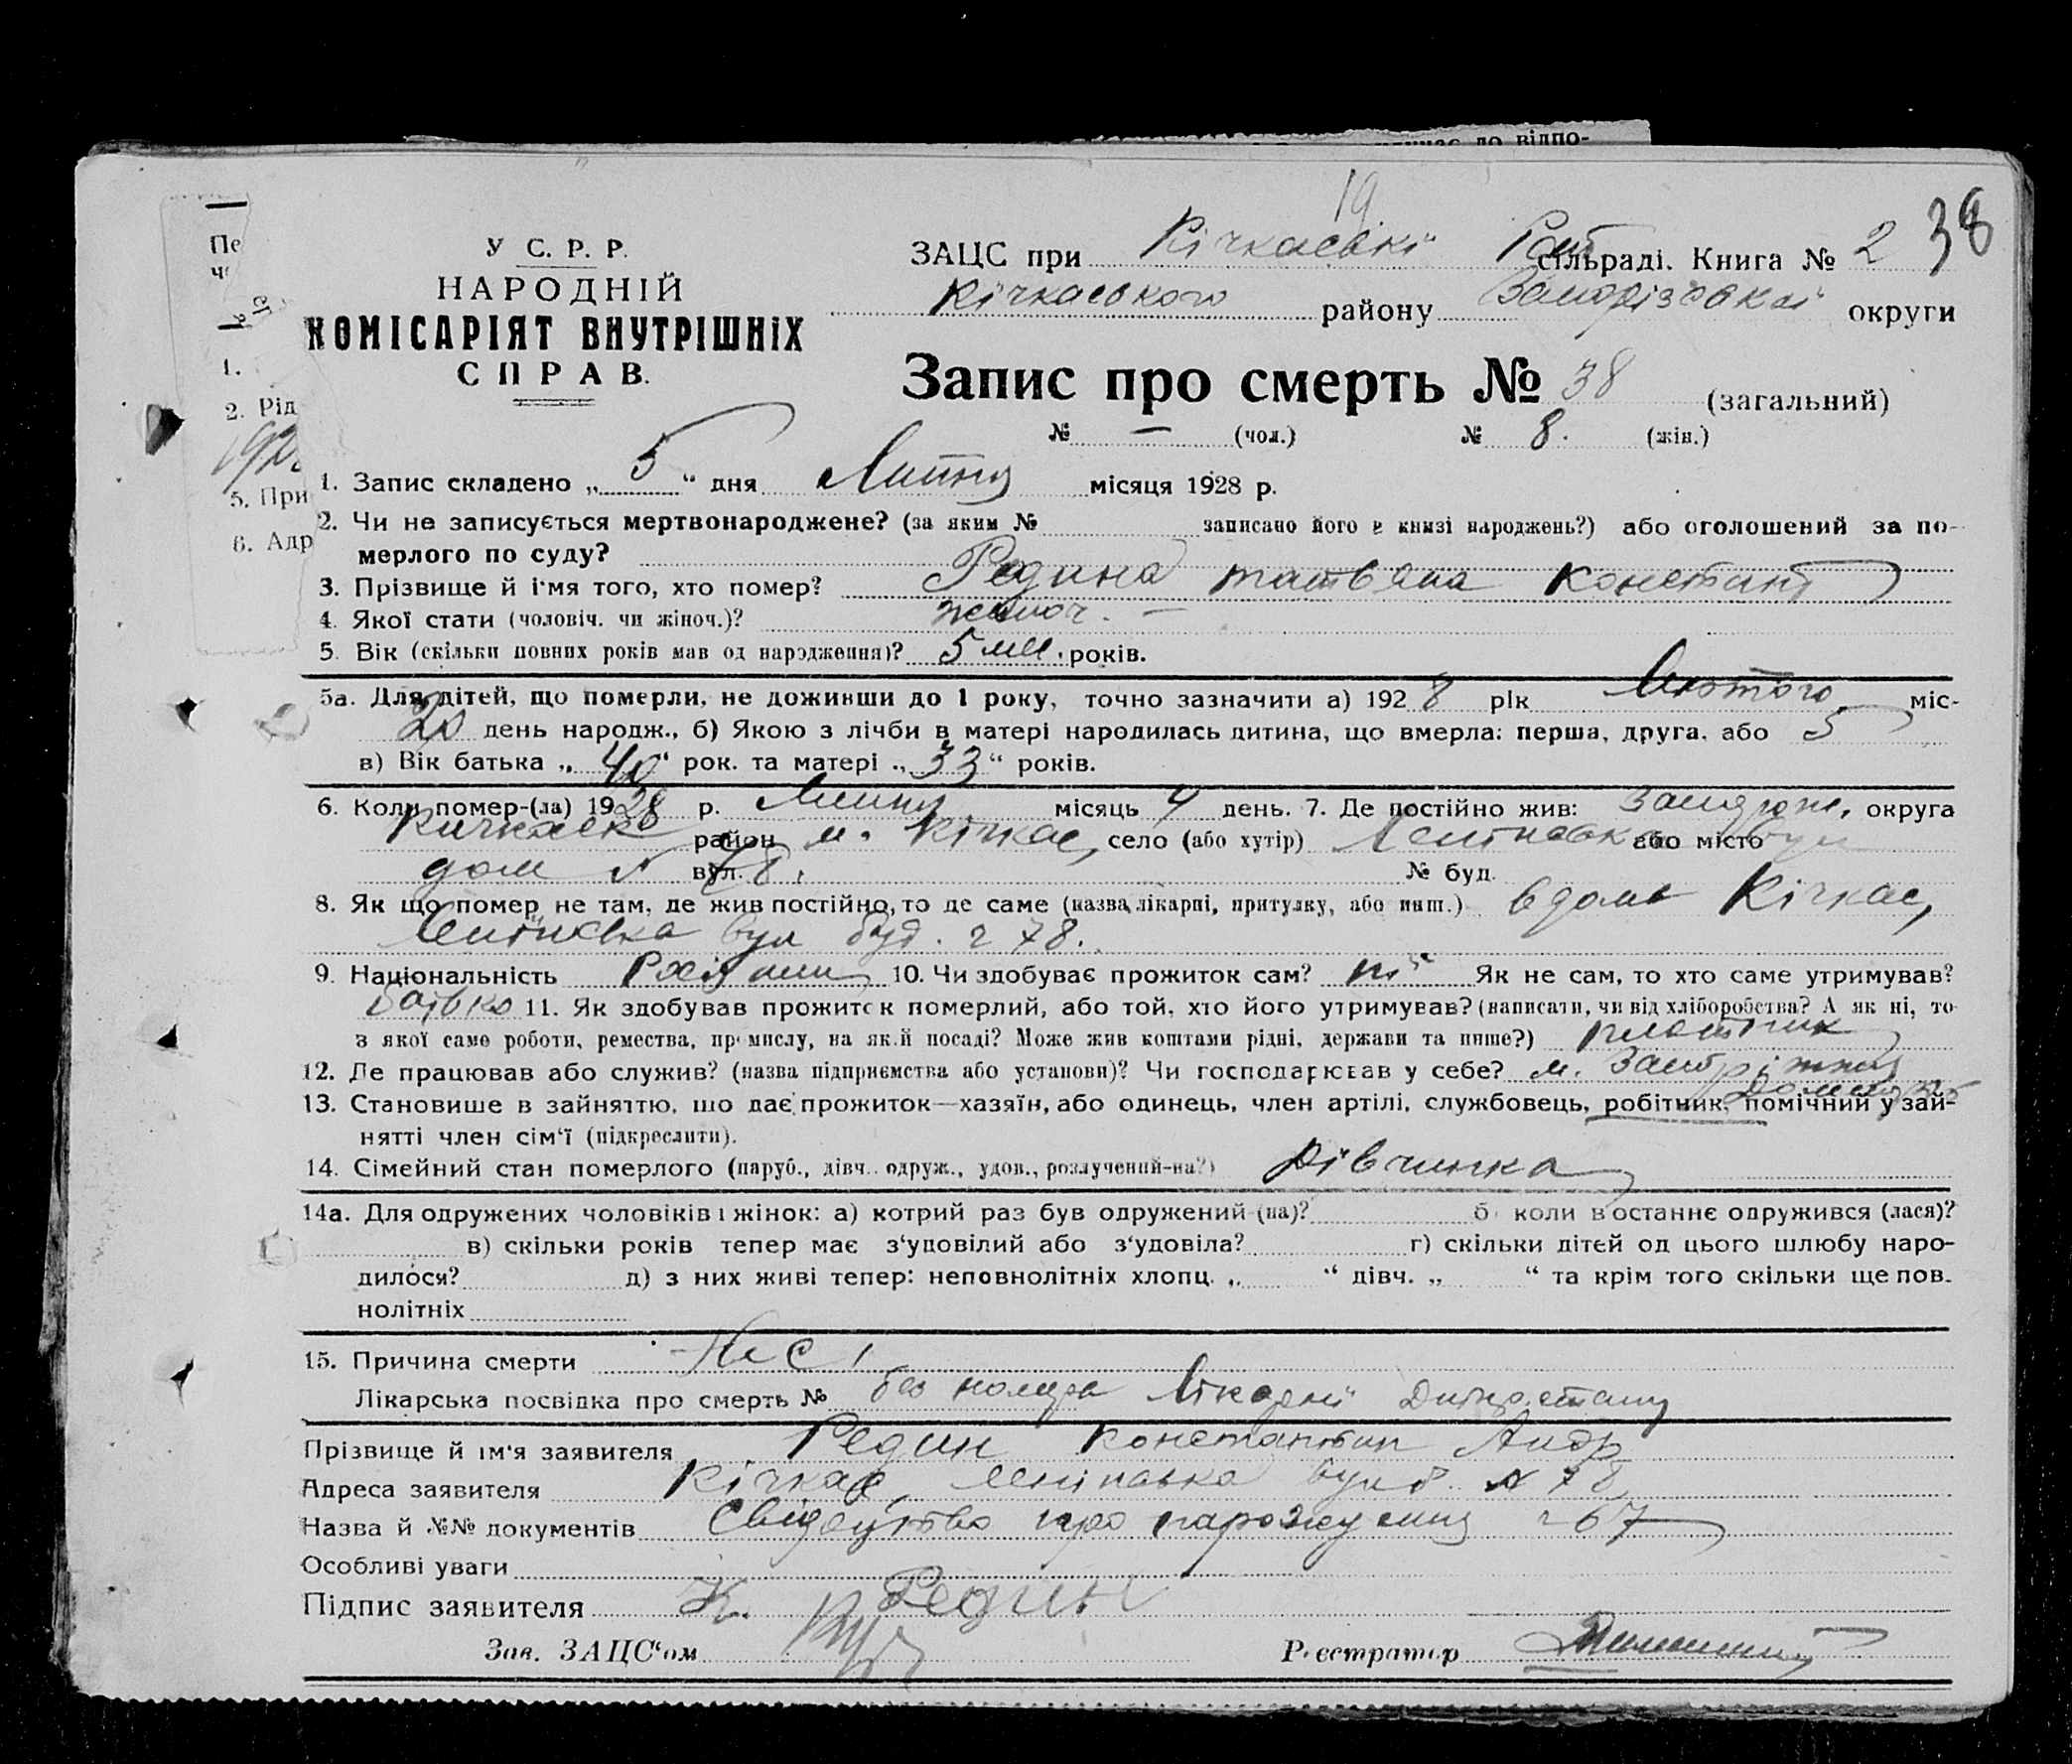 до відпо-
19.
38
У С. Р. Р.
НАРОДНІЙ
КОМІСАРІЯТ ВНУТРІШНІХ
СПРАВ.
ЗАЦС при Кічкаській Рай сільраді. Книга № 2
Кічкаського району Запорізької округи
Запис про смерть № 38 (загальний)
№ — (чол.) № 8. (жін.)
Пе
1.
2. Рід
5. При
6. Адр
1. Запис складено „ 5 “ дня Липня місяця 1928 р.
2. Чи не записується мертвонароджене? (за яким № записано його в книзі народжень?) або оголошений за по-
мерлого по суду?
3. Прізвище й ім'я того, хто помер? Редина татьяна Констант
4. Якої стати (чоловіч. чи жіноч.)? жіноч. —
5. Вік (скільки повних років мав од народження)? 5 міс. років.
5а. Для дітей, що померли, не доживши до 1 року, точно зазначити а) 192 8 рік Лютого міс-
20 день народж., б) Якою з лічби в матері народилась дитина, що вмерла: перша, друга, або 5
в) Вік батька „ 40 “ рок. та матері „ 33 “ років.
6. Коли помер-(ла) 19 28 р. Липня місяць 4 день. 7. Де постійно жив: округа
район м. Кічкас, село (або хутір) Ленінська або місто вул
дом № вул. 78. № буд.
8. Як що помер не там, де жив постійно, то де саме (назва лікарні, притулку, або инш.) вдома Кічкас,
Ленінська вул буд. № 78.
9. Національність 10. Чи здобуває прожиток сам? ні Як не сам, то хто саме утримував?
батько 11. Як здобував прожиток померлий, або той, хто його утримував? (написати, чи від хліборобства? А як ні, то
з якої саме роботи, ремества, промислу, на якій посаді? Може жив коштами рідні, держави та инше?) плотник
12. Де працював або служив? (назва підприємства або установи)? Чи господарював у себе? м. Запоріжжя
13. Становище в зайняттю, що дає прожиток—хазяїн, або одинець, член артілі, службовець, робітник, помічний у зай-
нятті член сім'ї (підкреслити).
14. Сімейний стан померлого (паруб., дівч. одруж., удов., розлучений-на?) Дівчинка
14а. Для одружених чоловіків і жінок: а) котрий раз був одружений (на)? б) коли в останнє одружився (лася)?
в) скільки років тепер має з'удовілий або з'удовіла? г) скільки дітей од цього шлюбу наро-
дилося? д) з них живі тепер: неповнолітніх хлопц. „ “ дівч. „ “ та крім того скільки ще пов.
нолітніх
15. Причина смерти
Лікарська посвідка про смерть № без номера Лікарні
Прізвище й ім'я заявителя Редин Константин Андр
Адреса заявителя Кічкас, Ленінська вул б. № 78
Назва й №№ документів Свідоцтво про народження № 67
Особливі уваги
Підпис заявителя К. Редин
Зав. ЗАЦС'ом
Реєстратор